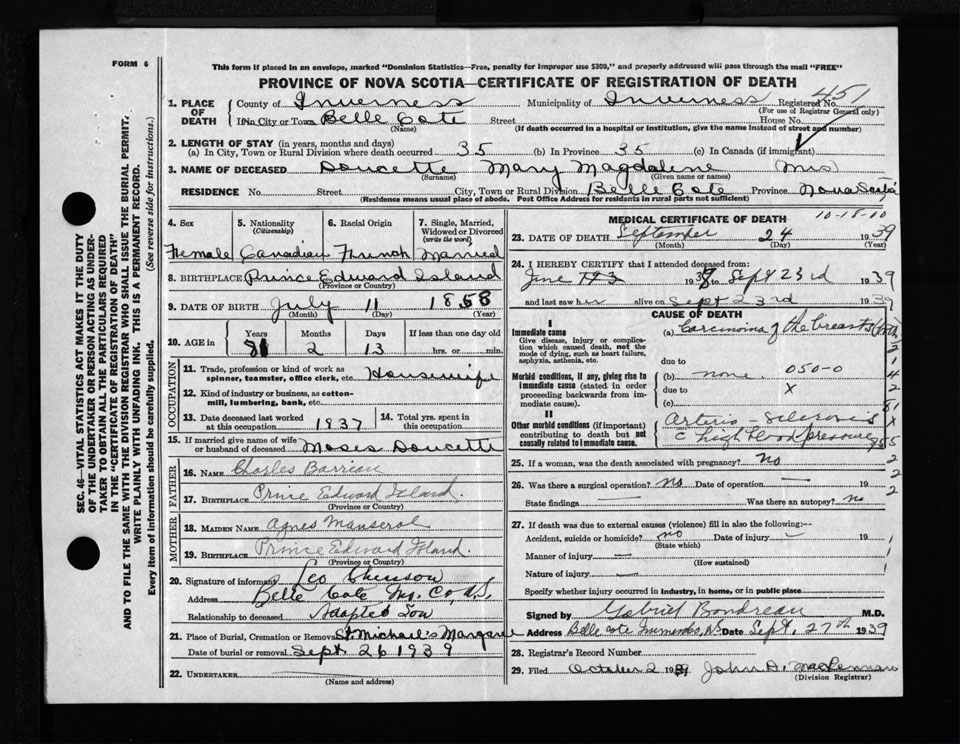 FORM 6
This form if placed in an envelope, marked "Dominion Statistics—Free, penalty for improper use $300," and properly addressed will pass through the mail "FREE"
PROVINCE OF NOVA SCOTIA—CERTIFICATE OF REGISTRATION OF DEATH
1. PLACE OF DEATH County of Inverness Municipality of Inverness Registered No. 451
(For use of Registrar General only)
If in City or Town Belle Cote Street House No.
(Name) (If death occurred in a hospital or institution, give the name instead of street and number)
2. LENGTH OF STAY (in years, months and days)
(a) In City, Town or Rural Division where death occurred 35 (b) In Province 35 (c) In Canada (if immigrant)
3. NAME OF DECEASED Doucette Mary Magdalene (Mrs)
(Surname) (Given name or names)
RESIDENCE No. Street City, Town or Rural Division Belle Cote Province Nova Scotia
(Residence means usual place of abode. Post Office Address for residents in rural parts not sufficient)
4. Sex 5. Nationality (Citizenship) 6. Racial Origin 7. Single, Married, Widowed or Divorced (write the word)
Female Canadian French Married
8. BIRTHPLACE Prince Edward Island
(Province or Country)
9. DATE OF BIRTH July 11 1858
(Month) (Day) (Year)
10. AGE in Years Months Days If less than one day old
81 2 13 hrs. or min.
OCCUPATION
11. Trade, profession or kind of work as spinner, teamster, office clerk, etc. Housewife
12. Kind of industry or business, as cotton-mill, lumbering, bank, etc.
13. Date deceased last worked at this occupation 1937 14. Total yrs. spent in this occupation
15. If married give name of wife or husband of deceased Moses Doucette
FATHER
16. NAME Charles
17. BIRTHPLACE Prince Edward Island.
(Province or Country)
MOTHER
18. MAIDEN NAME Agnes
19. BIRTHPLACE Prince Edward Island.
(Province or Country)
20. Signature of informant Leo
Address Belle Cote Inv. Co, N.S.
Relationship to deceased Adopted Son
21. Place of Burial, Cremation or Removal St. Michael's Margaree
Date of burial or removal Sept 26 1939
22. UNDERTAKER
(Name and address)
MEDICAL CERTIFICATE OF DEATH
10-18-10
23. DATE OF DEATH September 24 1939
(Month) (Day) (Year)
24. I HEREBY CERTIFY that I attended deceased from:
June 193 to Sept 23rd 1939
and last saw her alive on Sept 23rd 1939
CAUSE OF DEATH
I
Immediate cause (a) Carcinoma of the breasts (both)
Give disease, injury or complication which caused death, not the mode of dying, such as heart failure, asphyxia, asthenia, etc.
due to
Morbid conditions, if any, giving rise to immediate cause (stated in order proceeding backwards from immediate cause). (b) none. 050-0
due to X
(c)
II
Other morbid conditions (if important) contributing to death but not causally related to immediate cause. Arterio-Sclerosis
c high blood pressure
25. If a woman, was the death associated with pregnancy? no
26. Was there a surgical operation? no Date of operation —
State findings — Was there an autopsy? no
27. If death was due to external causes (violence) fill in also the following:—
Accident, suicide or homicide? no Date of injury — 19
(State which)
Manner of injury —
(How sustained)
Nature of injury —
Specify whether injury occurred in industry, in home, or in public place
Signed by Gabriel Boudreau M.D.
Address Belle cote Inverness, N.S. Date Sept. 27th 1939
28. Registrar's Record Number
29. Filed October 2 1939 John D. MacLennan
(Division Registrar)
SEC. 46—VITAL STATISTICS ACT MAKES IT THE DUTY
OF THE UNDERTAKER OR PERSON ACTING AS UNDER-
TAKER TO OBTAIN ALL THE PARTICULARS REQUIRED
IN THE "CERTIFICATE OF REGISTRATION OF DEATH"
AND TO FILE THE SAME WITH THE DIVISION REGISTRAR WHO SHALL ISSUE THE BURIAL PERMIT.
WRITE PLAINLY WITH UNFADING INK. THIS IS A PERMANENT RECORD.
Every item of information should be carefully supplied. (See reverse side for instructions.)